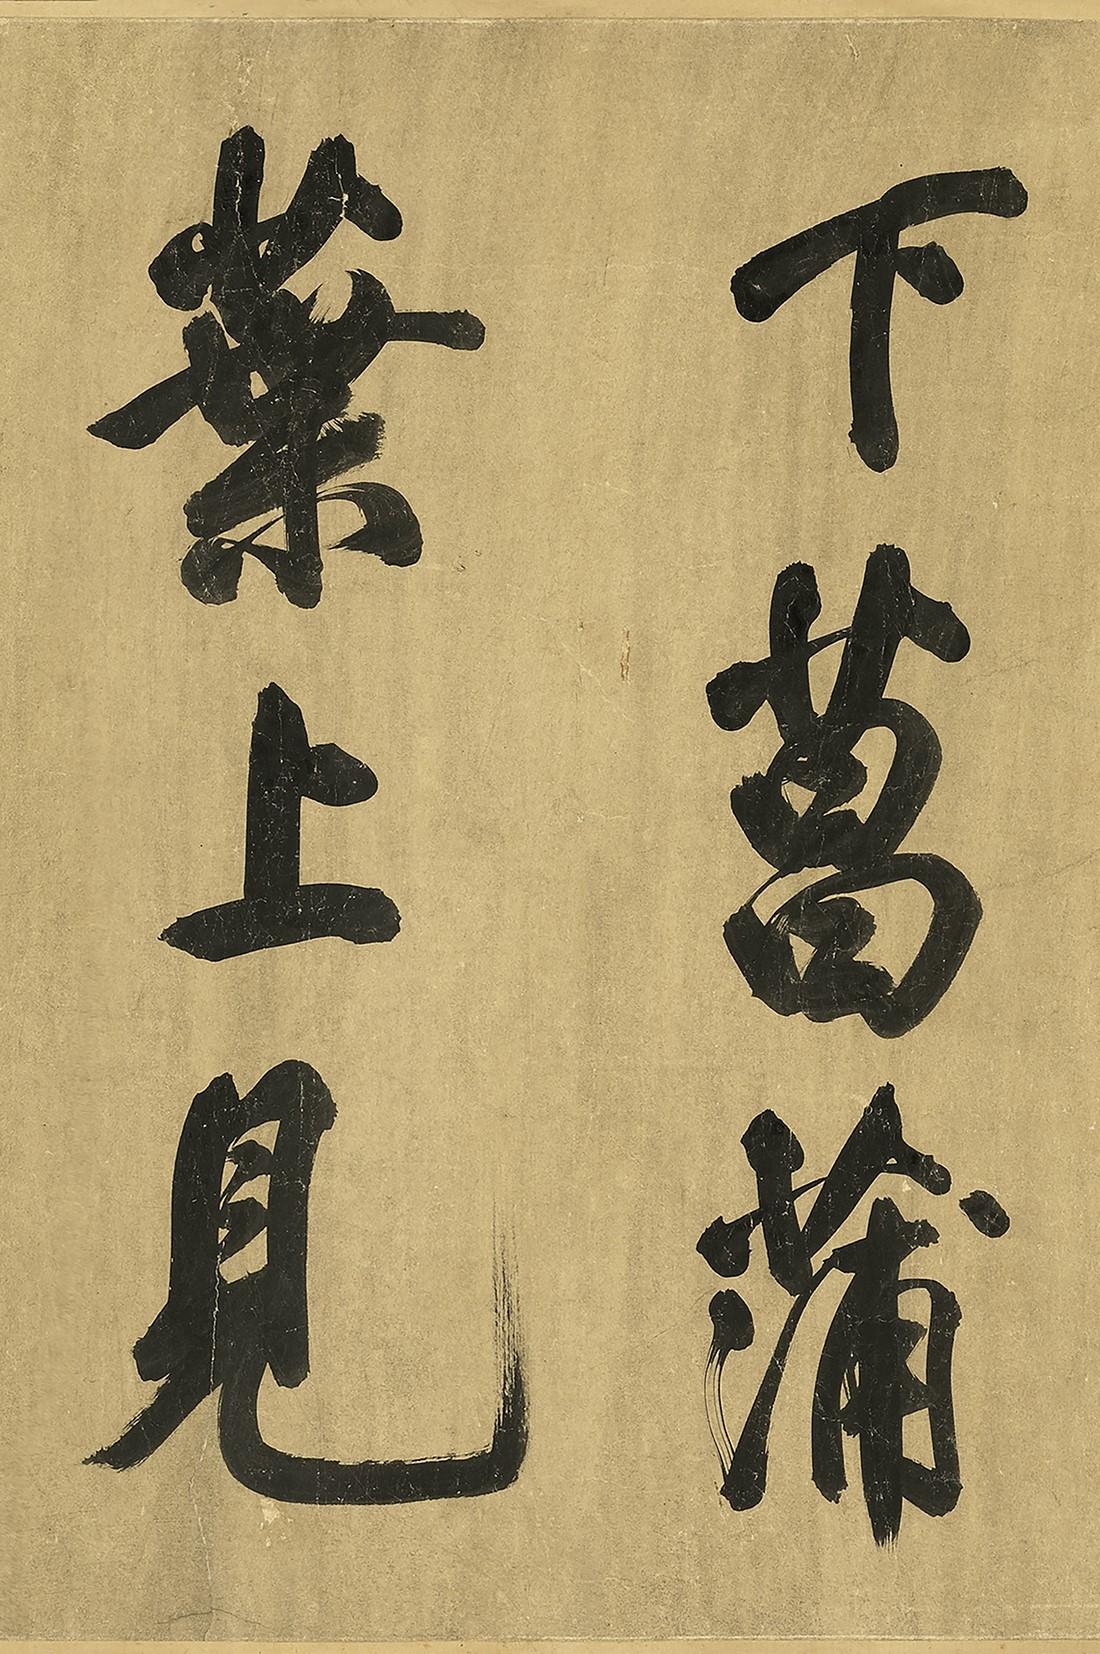 下菖蒲
葉上見